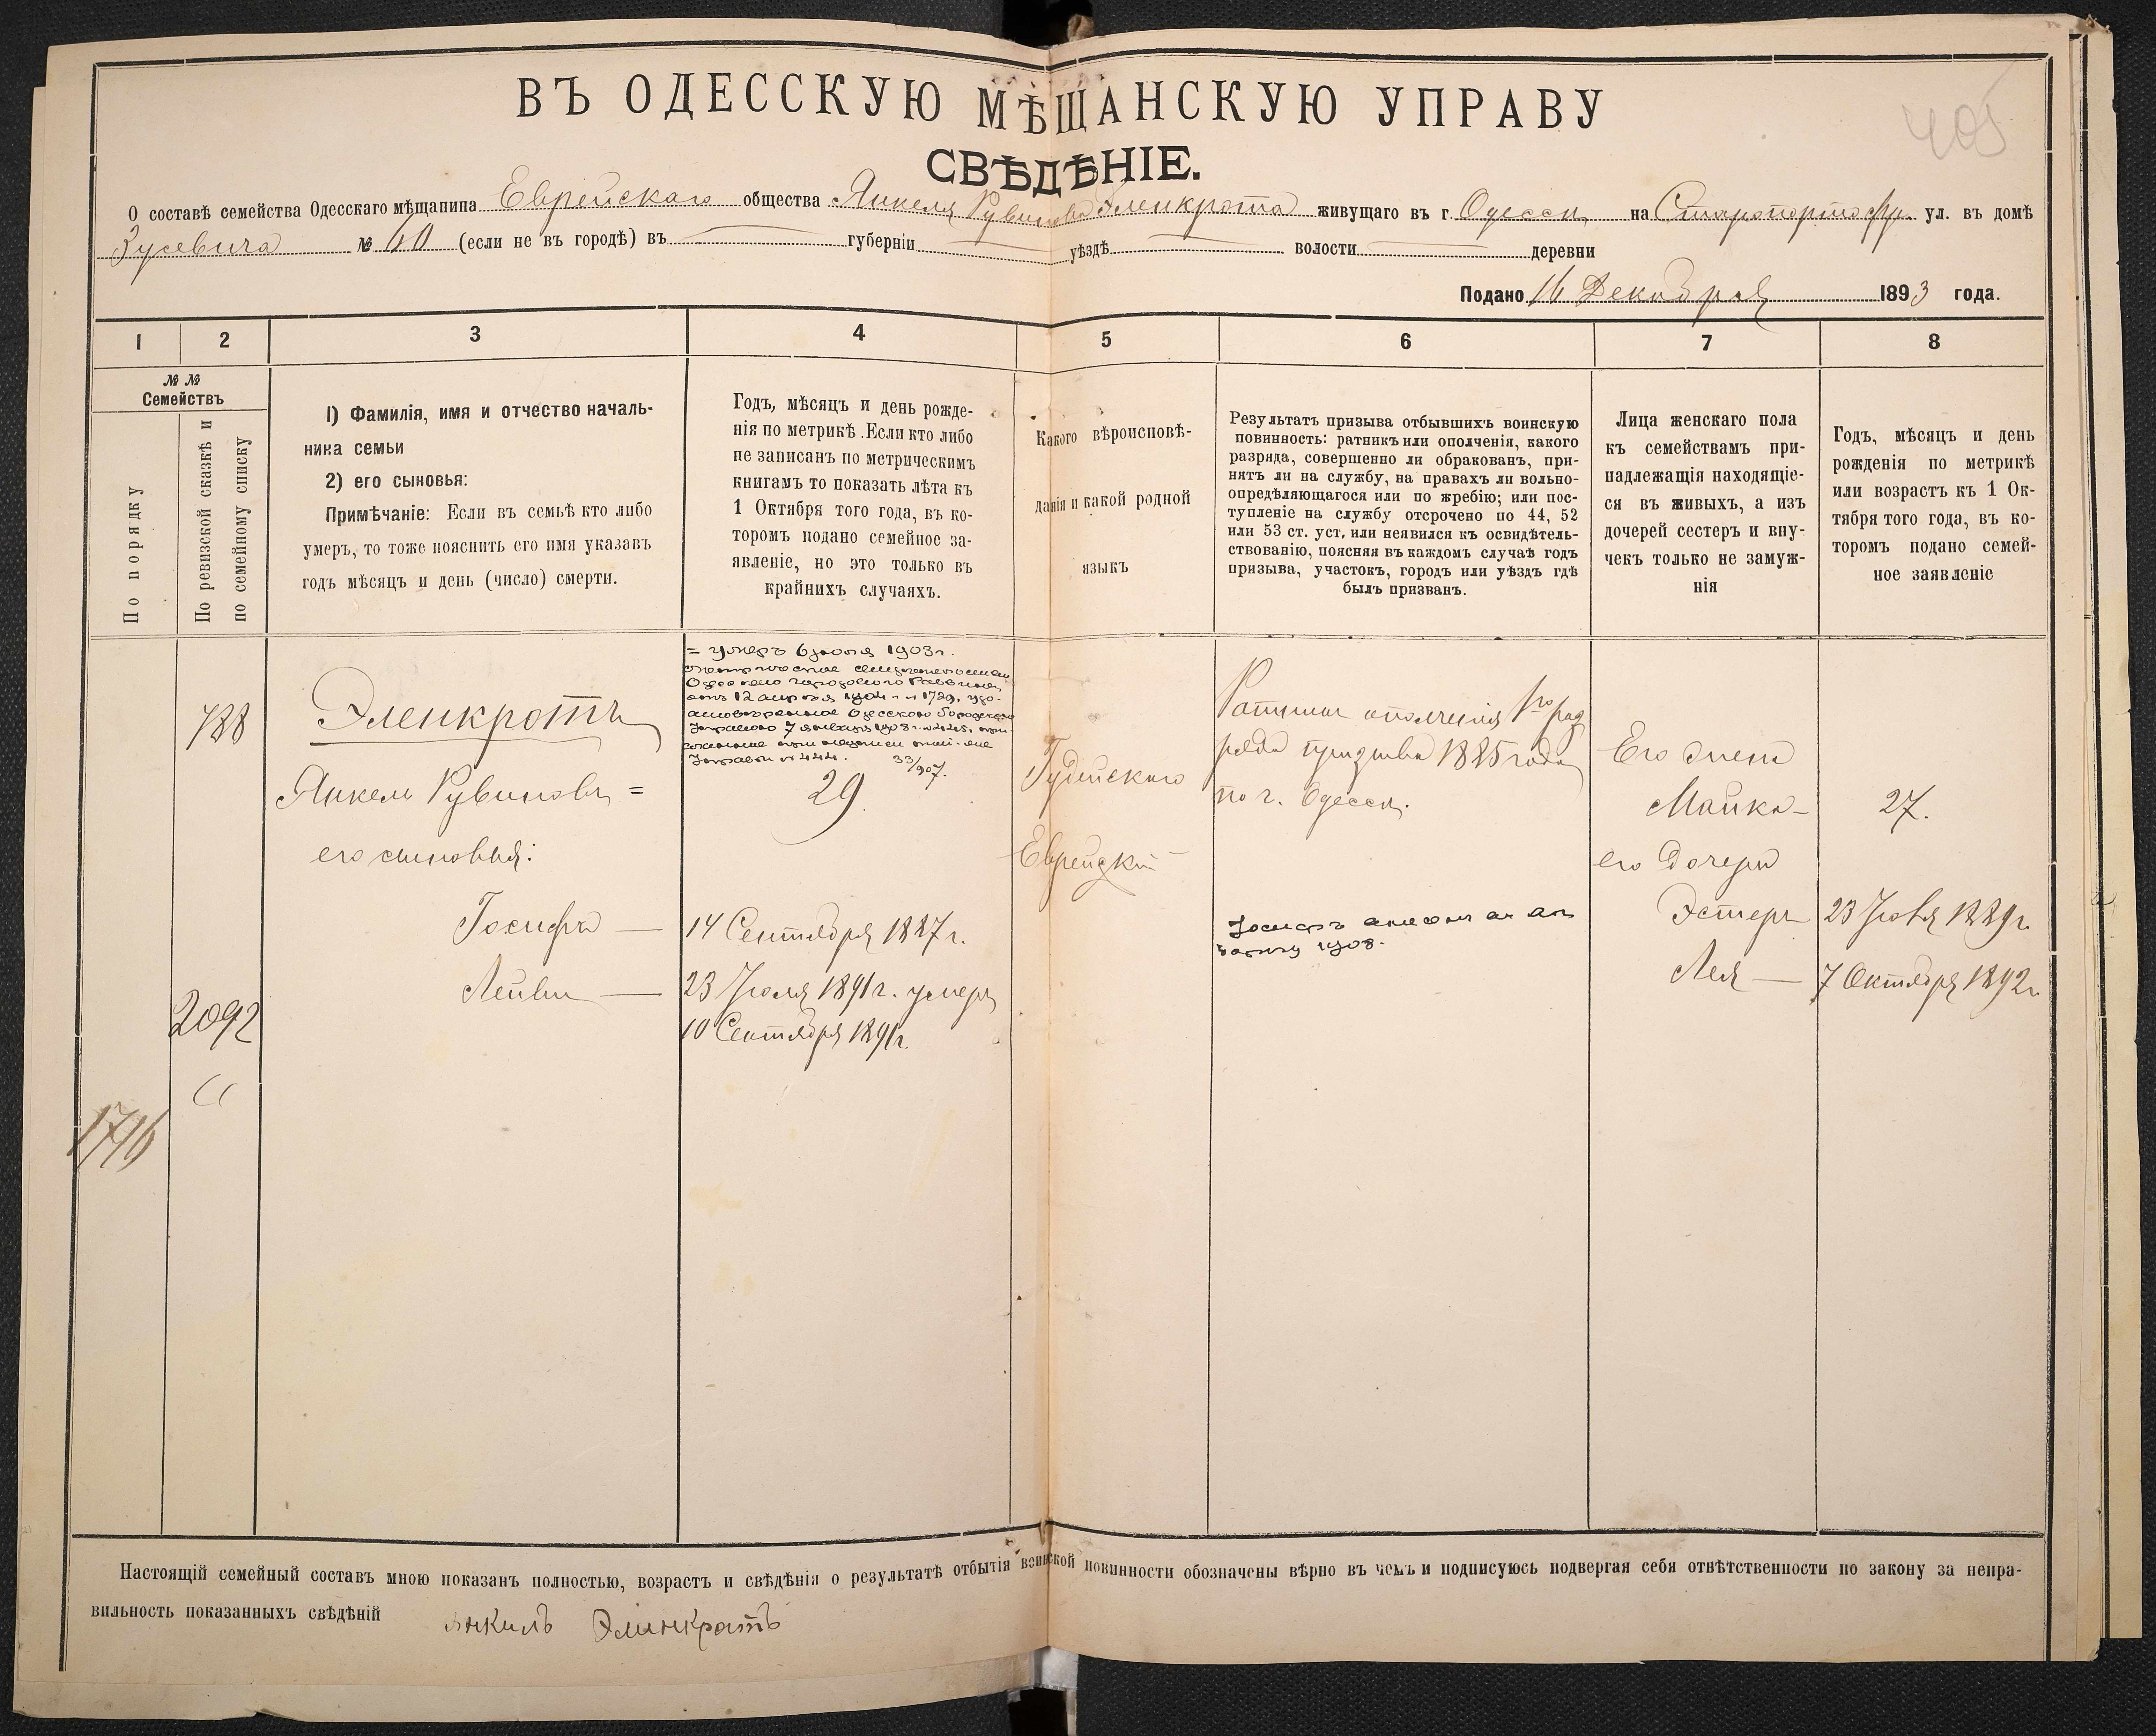 405
ВЪ ОДЕССКУЮ МѢЩАНСКУЮ УПРАВУ
СВѢДѢНІЕ.
О составѣ семейства Одесскаго мѣщанина Еврейскаго общества Янкеля Рувинова Эленкрота живущаго въ г. Одессѣ на Старопортофр. ул. въ домѣ
Зусевича № 40 (если не въ городѣ) въ губерніи уѣздѣ волости деревни
Подано 16 Декабря 1893 года.
1 2 3 4 5 6 7 8
№ №
Семействъ
По порядку
По ревизской сказкѣ и
по семейному списку
1) Фамилія, имя и отчество началь-
ника семьи
2) его сыновья:
Примѣчаніе: Если въ семьѣ кто либо
умеръ, то тоже пояснить его имя указавъ
годъ мѣсяцъ и день (число) смерти.
Годъ, мѣсяцъ и день рожде-
нія по метрикѣ. Если кто либо
не записанъ по метрическимъ
книгамъ то показать лѣта къ
1 Октября того года, въ ко-
торомъ подано семейное за-
явленіе, но это только въ
крайнихъ случаяхъ.
Какого вѣроисповѣ-
данія и какой родной
языкъ
Результатъ призыва отбывшихъ воинскую
повинность: ратникъ или ополченія, какого
разряда, совершенно ли обракованъ, при-
нятъ ли на службу, на правахъ ли вольно-
опредѣляющагося или по жребію; или пос-
тупленіе на службу отсрочено по 44, 52
или 53 ст. уст, или неявился къ освидѣтель-
ствованію, поясняя въ каждомъ случаѣ годъ
призыва, участокъ, городъ или уѣздъ гдѣ
былъ призванъ.
Лица женскаго пола
къ семействамъ при-
надлежащія находящіе-
ся въ живыхъ, а изъ
дочерей сестеръ и вну-
чекъ только не замуж-
нія
Годъ, мѣсяцъ и день
рожденія по метрикѣ
или возрастъ къ 1 Ок-
тября того года, въ ко-
торомъ подано семей-
ное заявленіе
788
2092
1716
Эленкротъ
Янкель Рувиновъ =
его сыновья:
Іосифъ —
Лейви —
= умеръ 6 1903 г.
Одесскаго городского Раввина
отъ 12 апрѣля 1904 г. № 1729, удо-
Одесскою Городскою
Управою 7 января 1908 г.
Управы № 444. 33/907.
29
14 Сентября 1887 г.
23 Іюля 1891 г. умеръ
10 Сентября 1891 г.
Іудейскаго
Еврейскій
Ратникъ ополченія 1го раз
ряда призыва 1885 года
по г. Одессѣ.
Іосифъ
1908.
Его жена
Майка —
его дочери
Эстеръ
Лея —
27.
23 1889 г.
7 Октября 1892 г.
Настоящій семейный составъ мною показанъ полностью, возрастъ и свѣдѣнія о результатѣ отбытія воинской повинности обозначены вѣрно въ чемъ и подписуюсь подвергая себя отвѣтственности по закону за непра-
вильность показанныхъ свѣдѣній Янкиль Элинкратъ